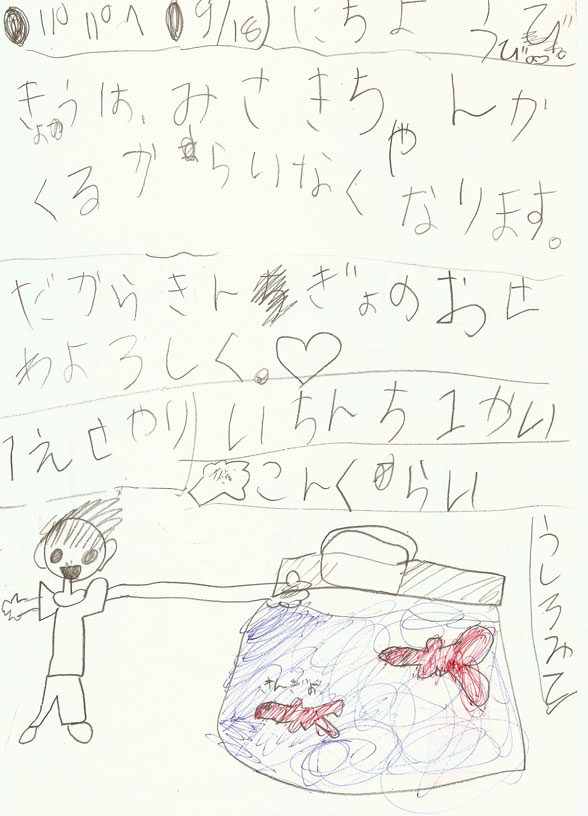 パパへ 9/18 にちよ
うび
きょうは、みさきちゃんが
くるからいなくなります。
だからきんぎょのおせ
わよろしく。♡
1えせやり いちんち1かい
こんくらい
うしろみて
きんぎょ